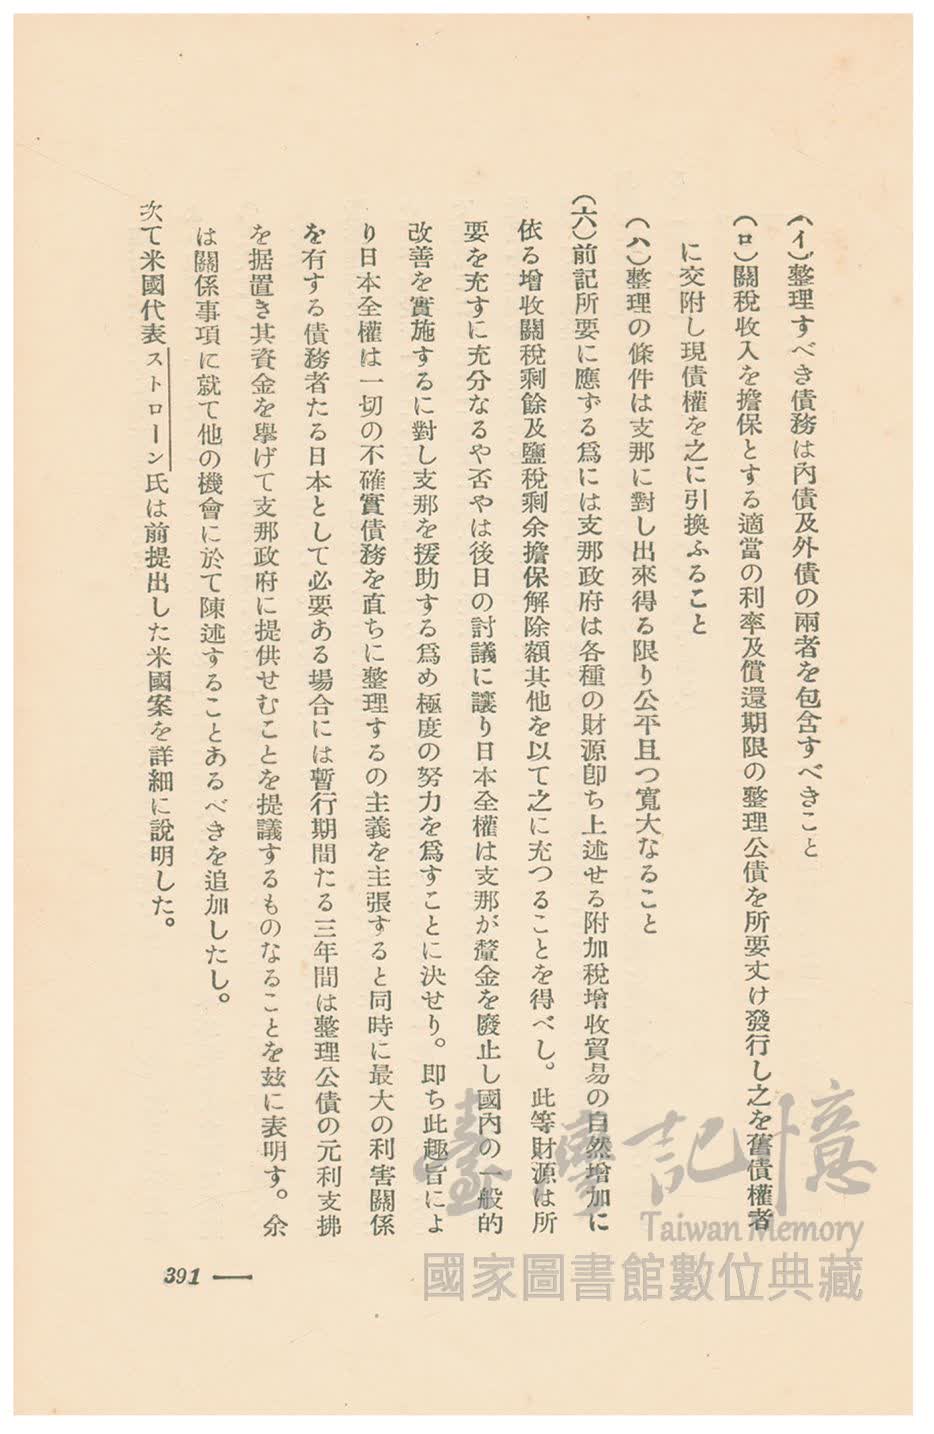 (イ)整理すべき債務は內債及外債の兩者を包含すべきこと
(ロ)關稅收入を擔保とする適當の利率及償還期限の整理公債を所要丈け發行し之を舊債權者
に交附し現債權を之に引換ふること
(ハ)整理の條件は支那に對し出來得る限り公平且つ寬大なること
(六)前記所要に應ずる爲には支那政府は各種の財源卽ち上述せる附加稅增收貿易の自然增加に
依る增收關稅剩餘及鹽稅剩余擔保解除額其他を以て之に充つることを得べし。此等財源は所
要を充すに充分なるや否やは後日の討議に讓り日本全權は支那が釐金を廢止し國內の一般的
改善を實施するに對し支那を援助する爲め極度の努力を爲すことに決せり。卽ち此趣旨によ
り日本全權は一切の不確實債務を直ちに整理するの主義を主張すると同時に最大の利害關係
を有する債務者たる日本として必要ある場合には暫行期間たる三年間は整理公債の元利支拂
を据置き其資金を擧げて支那政府に提供せむことを提議するものなることを玆に表明す。余
は關係事項に就て他の機會に於て陳述することあるべきを追加したし。
次て米國代表ストローン氏は前提出した米國案を詳細に說明した。
391
臺灣記憶
Taiwan Memory
國家圖書館數位典藏